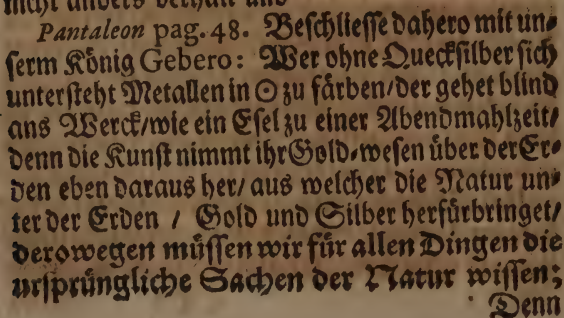 nicht anders verhält und
Pantaleon pag. 48. Beschliesse dahero mit un⸗
serm König Gebero: Wer ohne Quecksilber sich
untersteht Metallen in ☉ zu färben/der gehet blind
ans Werck/wie ein Esel zu einer Abendmahlzeit/
denn die Kunst nimmt ihr Gold⸗wesen über der Er⸗
den eben daraus her/ aus welcher die Natur un⸗
ter der Erden / Gold und Silber herfürbringet/
derowegen müssen wir für allen Dingen die
ursprüngliche Sachen der Natur wissen;
Denn